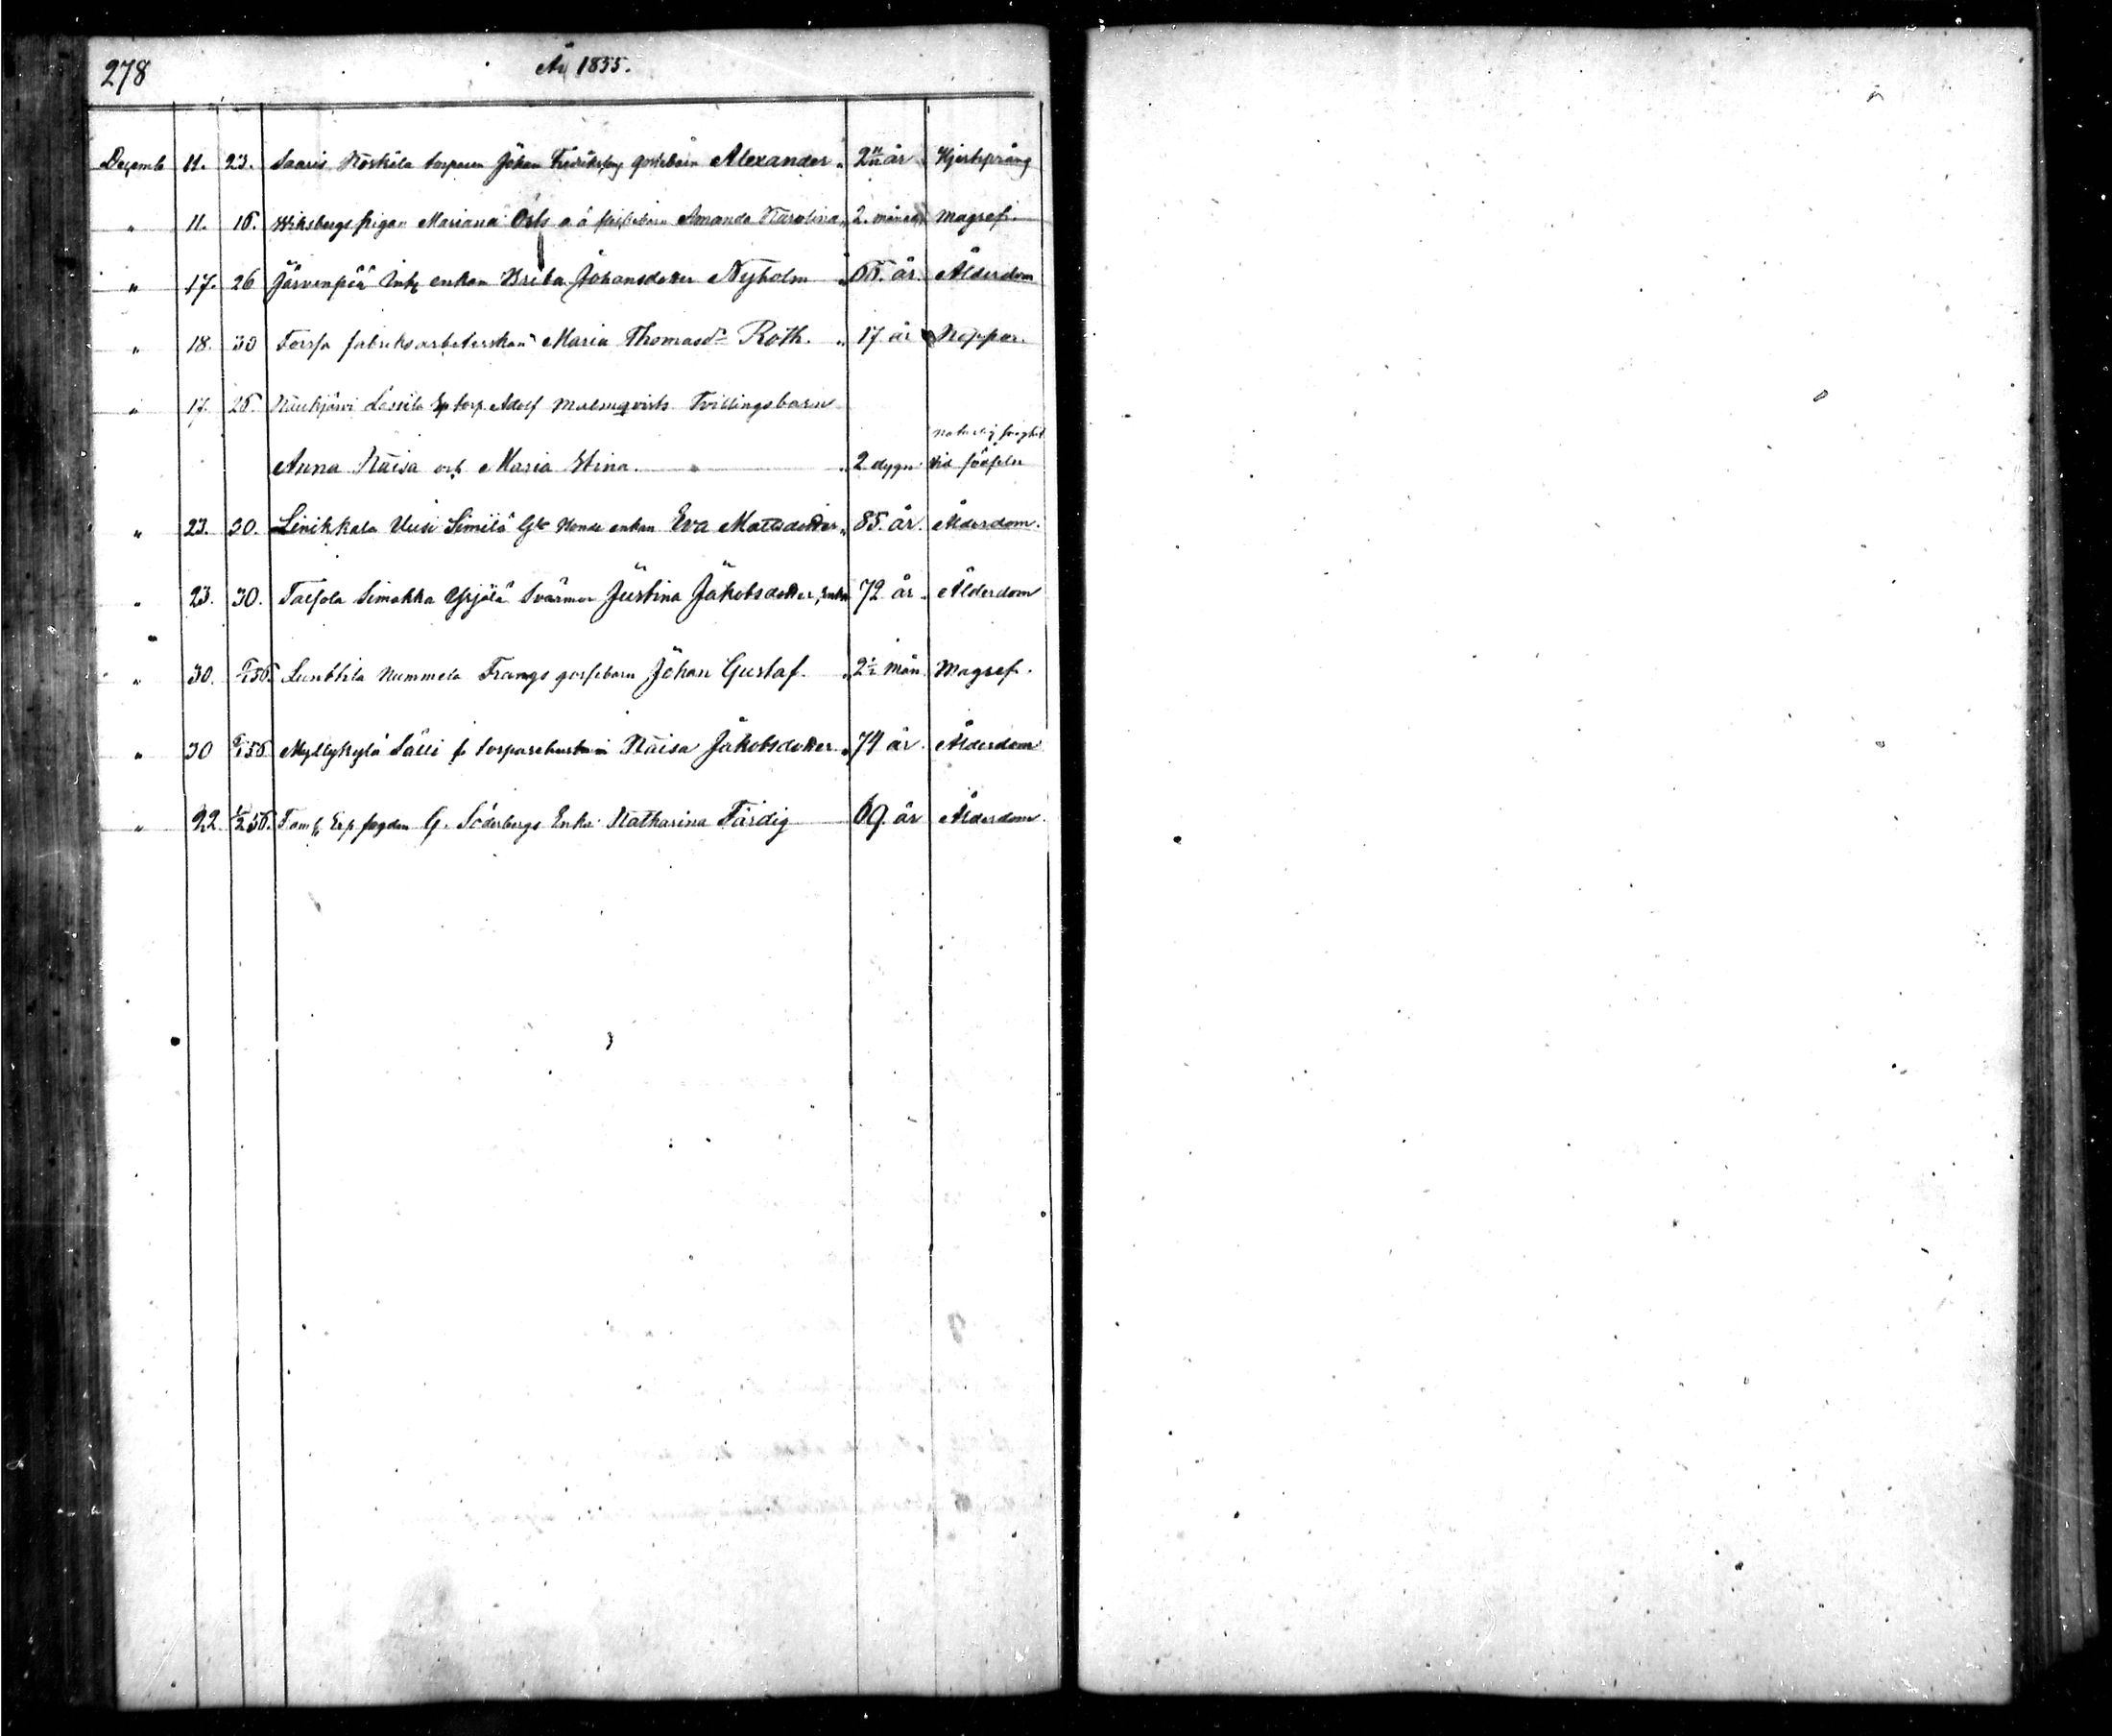 278 År 1855.
Decemb 11. 23. Saaris Koskela torparen Johan Fredrikss gossebarn Alexander " 2 år Hjertsprång
" 11. 16. Wiksbergs pigan Mariana o ä flickebarn Amanda Karolina " 2. månad magref.
" 17. 26 Järvenpää Inh enkan Brita Johansdotter Nyholm " 66. år Ålderdom
" 18. 30 Forssa fabriksarbeterskan Maria Thomasdr Roth. " 17 år Koppor.
" 17. 26. Kaukjärvi Lassila torp Adolf Malmqvists Tvillingsbarn
Anna Kaisa och Maria Stina " 2 dygn vid födseln
" 23. 30. Linikkala Uusi Similä enkan Eva Mattsdotter " 85. år. Ålderdom.
" 23. 30. Talsola Simakka Yrjälä Svärmor Justina Jakobsdotter, Enka 72 år. Ålderdom
" 30. 56. Nummela Frangs gossebarn Johan Gustaf. " 2½ mån Magref.
" 30 56 Myllykylä Sälli f torparehustrun Kaisa Jakobsdotter " 74 år. Ålderdom
" 22. ½ 56. fogden G. Söderbergs Enka Katharina Färdig 69. år Ålderdom.